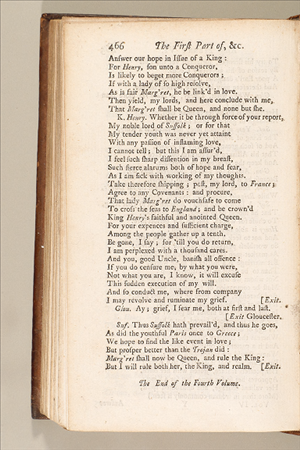 466 The First Part of, &c.
Answer our hope in Issue of a King:
For Henry, son unto a Conqueror,
Is likely to beget more Conquerors;
If with a lady of so high resolve,
As is fair Marg'ret, he be link'd in love.
Then yield, my lords, and here conclude with me,
That Marg'ret shall be Queen, and none but she.
K. Henry. Whether it be through force of your report,
My noble lord of Suffolk; or for that
My tender youth was never yet attaint
With any passion of inflaming love,
I cannot tell; but this I am assur'd,
I feel such sharp dissention in my breast,
Such fierce alarums both of hope and fear,
As I am sick with working of my thoughts.
Take therefore shipping; post, my lord, to France;
Agree to any Covenants: and procure,
That lady Marg'ret do vouchsafe to come
To cross the seas to England; and be crown'd
King Henry's faithful and anointed Queen.
For your expences and sufficient charge,
Among the people gather up a tenth.
Be gone, I say; for 'till you do return,
I am perplexed with a thousand cares.
And you, good Uncle, banish all offence:
If you do censure me, by what you were,
Not what you are, I know, it will excuse
This sudden execution of my will.
And so conduct me, where from company
I may revolve and ruminate my grief. [Exit.
Glou. Ay; grief, I fear me, both at first and last.
[Exit Gloucester.
Suf. Thus Suffolk hath prevail'd, and thus he goes,
As did the youthful Paris once to Greece;
We hope to find the like event in love;
But prosper better than the Trojan did:
Marg'ret shall now be Queen, and rule the King:
But I will rule both her, the King, and realm. [Exit.
The End of the Fourth Volume.